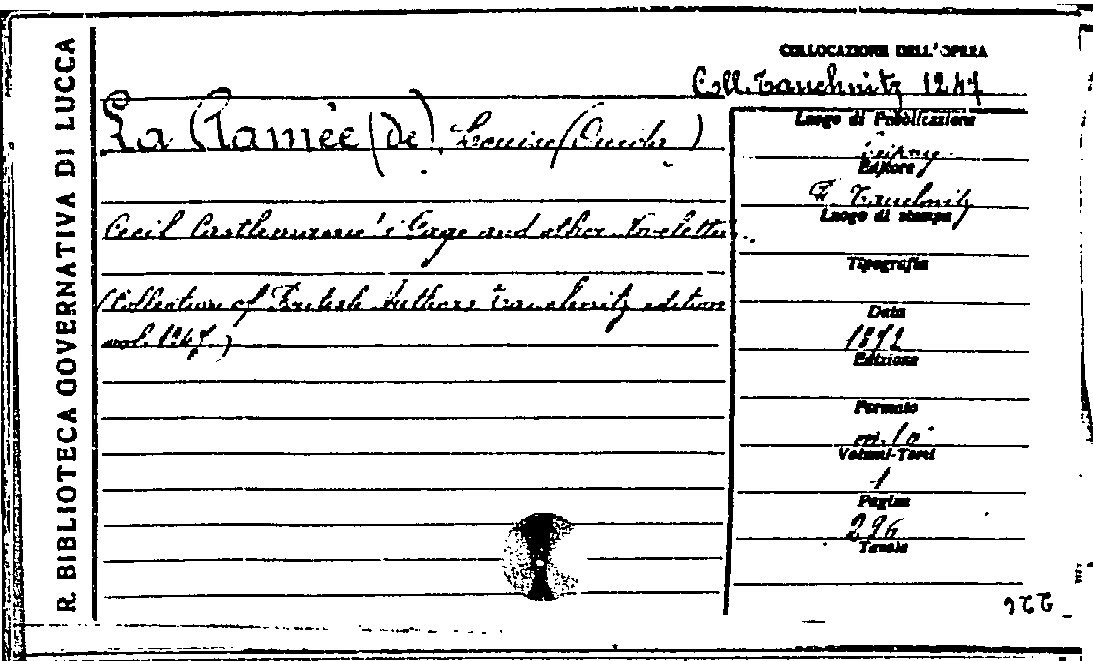 R. BIBLIOTECA GOVERNATIVA DI LUCCA
COLLOCAZIONE DELL'OPERA
Coll. Tauchnitz 1247
La Ramée (de) Louise (Ouida)
Cecil Castlemaine's Gage and other Novelettes.
(Collection of British Authors Tauchnitz edition
vol. 1247.)
Luogo di Pubblicazione
Leipzig
Editore
Tauchnitz
Luogo di stampa
Tipografia
Data
1872
Edizione
Formato
Volumi-Tomi
1
Pagine
296
Tavole